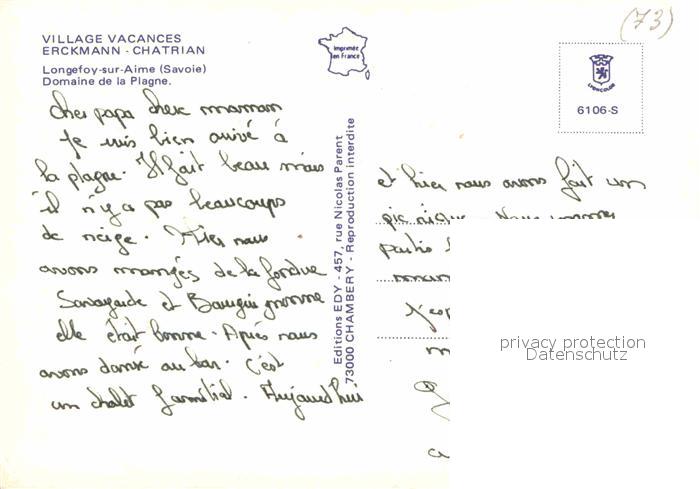 (73)
VILLAGE VACANCES
ERCKMANN - CHATRIAN
Longefoy-sur-Aime (Savoie)
Domaine de la Plagne.
imprimée
en France
6106-S
cher papa cher maman
Je suis bien arivé à
la plagne. Il fait beau mais
il n'y a pas beaucoups
de neige. Hier nous
avons mangés de la fondue
Savoyarde et Bourguignonne
elle était bonne. Après nous
avons dansé au bar. C'est
un chalet familial. Aujourd'hui
Editions EDY - 457, rue Nicolas Parent
73000 CHAMBERY - Reproduction interdite
et hier nous avons fait un
pic nique. Nous sommes
partis
privacy protection
Datenschutz